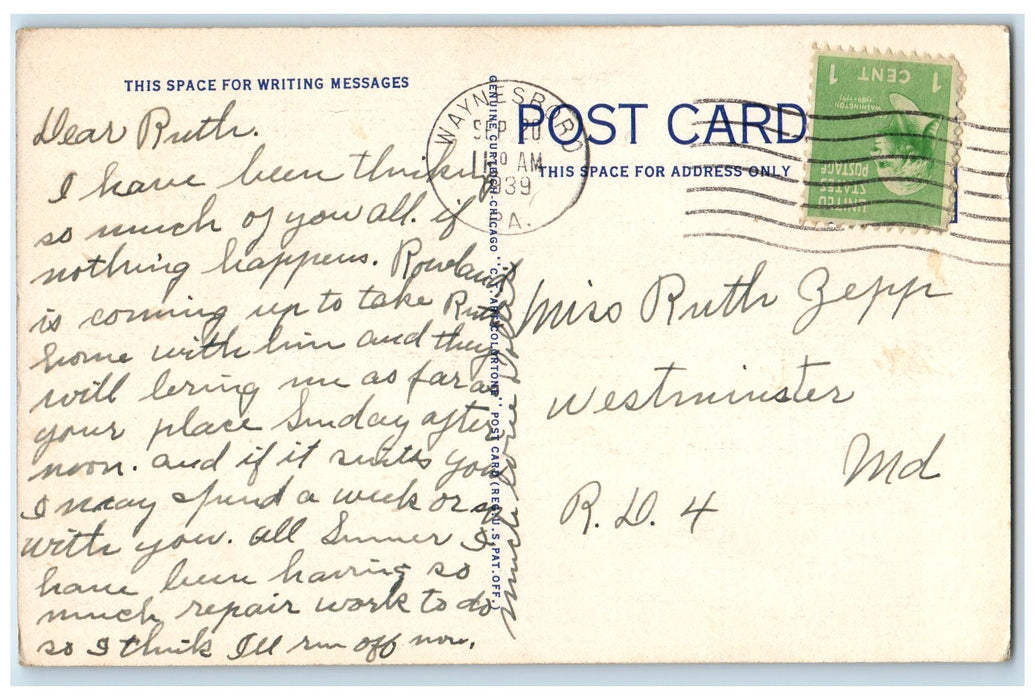 THIS SPACE FOR WRITING MESSAGES
Dear Ruth.
I have been thinking
so much of you all. if
nothing happens. Rowland
is coming up to take Ruth
home with him and they
will bring me as far as
your place Sunday after
noon. and if it suites you
I may spend a week or so
with you. all Summer I
have been having so
much repair work to do
so I think Ill run off now.
much love
GENUINE CURTEICH-CHICAGO "C.T. ART-COLORTONE" POST CARD (REG. U.S. PAT. OFF.)
WAYNESBORO
SEP 20
AM
1939
PA.
POST CARD
THIS SPACE FOR ADDRESS ONLY
1 CENT 1
WASHINGTON
UNITED
STATES
POSTAGE
Miss Ruth Zepp
Westminster
Md
R.D. 4